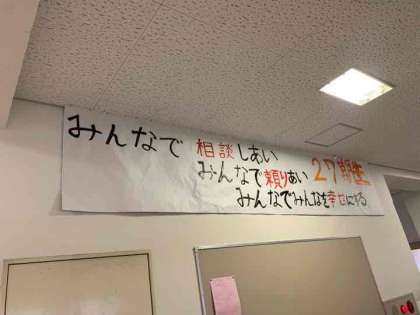 みんなで相談しあい
みんなで頼りあい
みんなでみんなを幸せにする
27期生